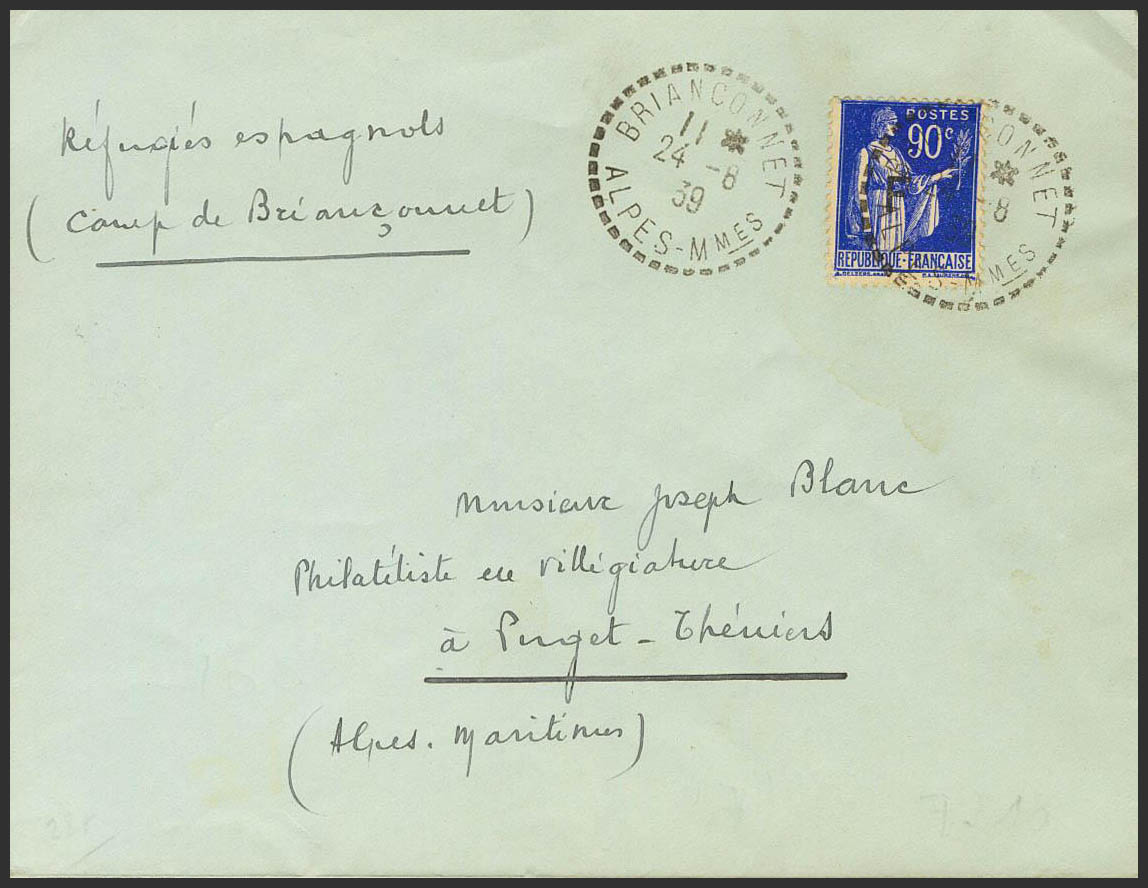 Réfugiés espagnols
(Camp de Briançonnet)
BRIANCONNET
11 *
24 -8
39
ALPES-MMES
POSTES
90c
F
REPUBLIQUE-FRANÇAISE
ONNET
*
-8
ES-MMES
Monsieur Joseph Blanc
Philatéliste en villégiature
à Puget-Théniers
(Alpes-Maritimes)